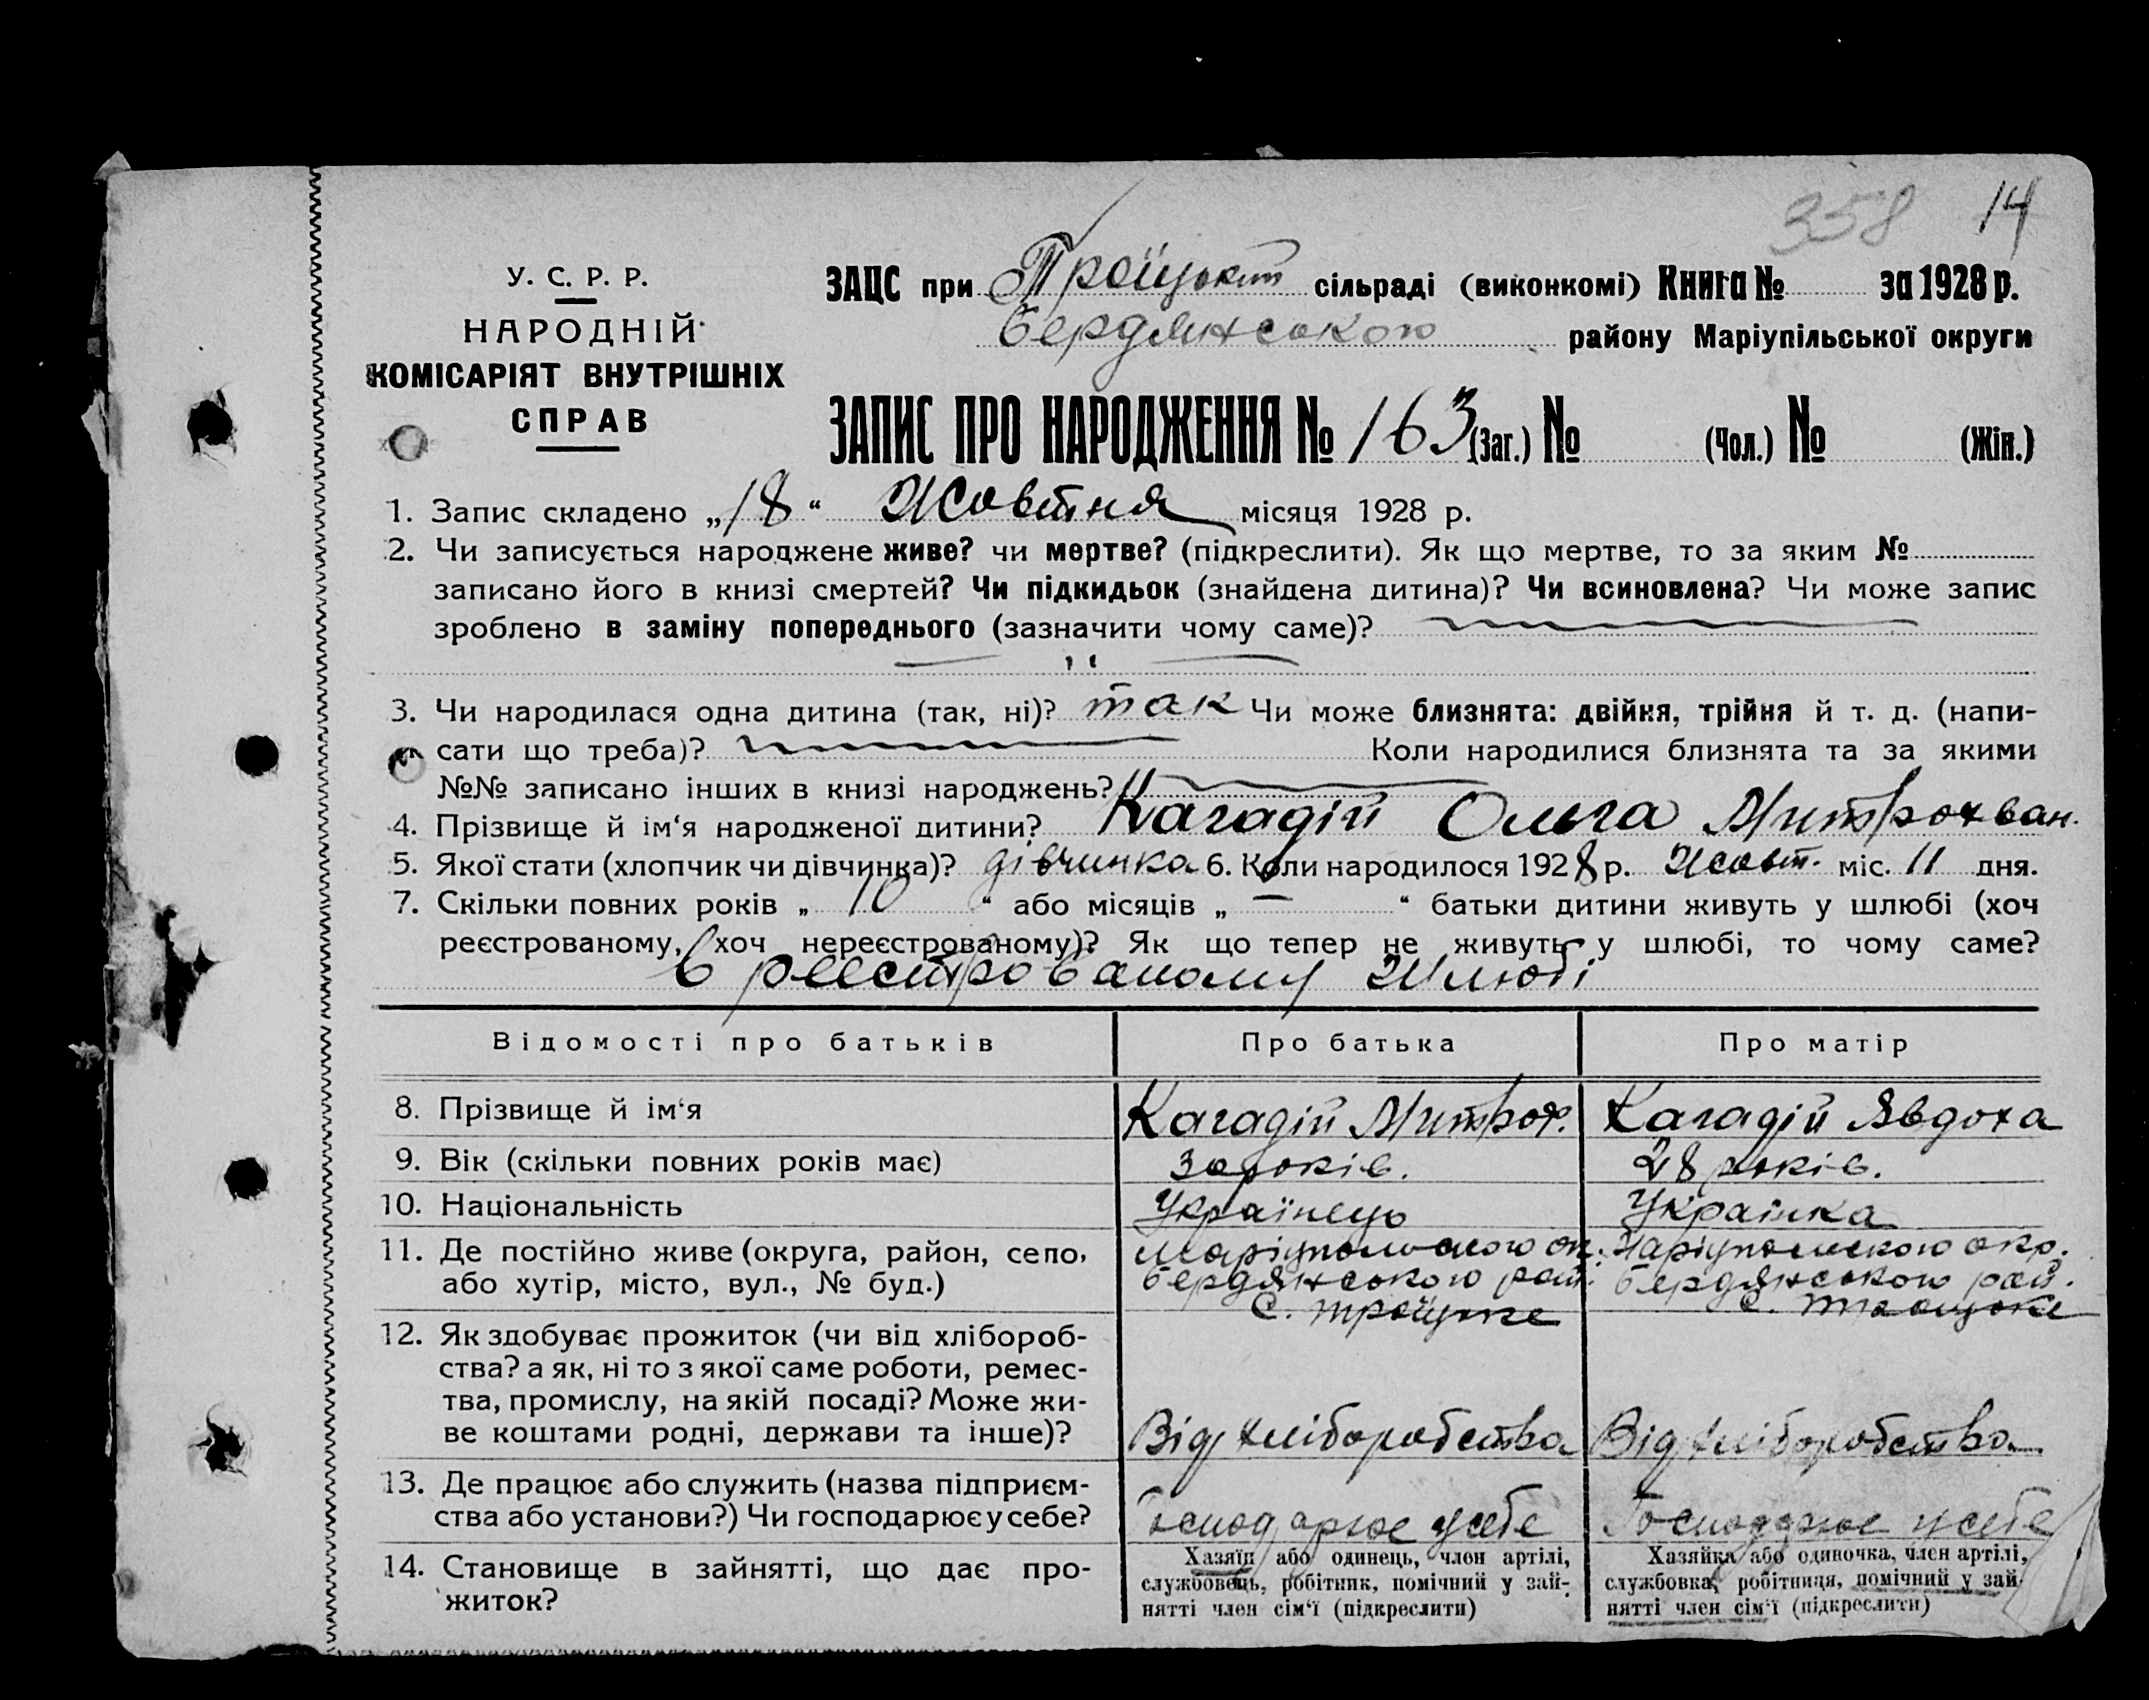 358 14
У. С. Р. Р.
НАРОДНІЙ
КОМІСАРІЯТ ВНУТРІШНІХ
СПРАВ
ЗАЦС при Троїцькій сільраді (виконкомі) Книга № за 1928 р.
Бердянського району Маріупільської округи
ЗАПИС ПРО НАРОДЖЕННЯ № 163 (Заг.) № (Чол.) № (Жін.)
1. Запис складено „18“ Жовтня місяця 1928 р.
2. Чи записується народжене живе? чи мертве? (підкреслити). Як що мертве, то за яким №
записано його в книзі смертей? Чи підкидьок (знайдена дитина)? Чи всиновлена? Чи може запис
зроблено в заміну попереднього (зазначити чому саме)?
3. Чи народилася одна дитина (так, ні)? так Чи може близнята: двійня, трійня й т. д. (напи-
сати що треба)? Коли народилися близнята та за якими
№№ записано інших в книзі народжень?
4. Прізвище й ім‘я народженої дитини? Кагадій Ольга Митрохван.
5. Якої стати (хлопчик чи дівчинка)? дівчинка 6. Коли народилося 1928 р. Жовт. міс. 11 дня.
7. Скільки повних років „ 10 “ або місяців „ — “ батьки дитини живуть у шлюбі (хоч
реєстрованому, хоч нереєстрованому)? Як що тепер не живуть у шлюбі, то чому саме?
в реєстрованому Шлюбі
Відомості про батьків Про батька Про матір
8. Прізвище й ім‘я Кагадій Митрох. Кагадій Явдоха
9. Вік (скільки повних років має) 30 років. 28 років.
10. Національність Українець Українка
11. Де постійно живе (округа, район, село,
або хутір, місто, вул., № буд.)
Маріупольського ок.
Бердянського рай.
с. Троїцьке
Маріупольского окр.
Бердянського рай.
с. Троїцьке
12. Як здобуває прожиток (чи від хлібороб-
ства? а як, ні то з якої саме роботи, ремес-
тва, промислу, на якій посаді? Може жи-
ве коштами родні, держави та інше)?
Від хліборобства Від хліборобства
13. Де працює або служить (назва підприєм-
ства або установи?) Чи господарює у себе?
Господарює у себе Господарює у себе
14. Становище в зайнятті, що дає про-
житок?
Хазяїн або одинець, член артілі,
службовець, робітник, помічний у зай-
нятті член сім‘ї (підкреслити)
Хазяйка або одиночка, член артілі,
службовка, робітниця, помічний у зай-
нятті член сім‘ї (підкреслити)